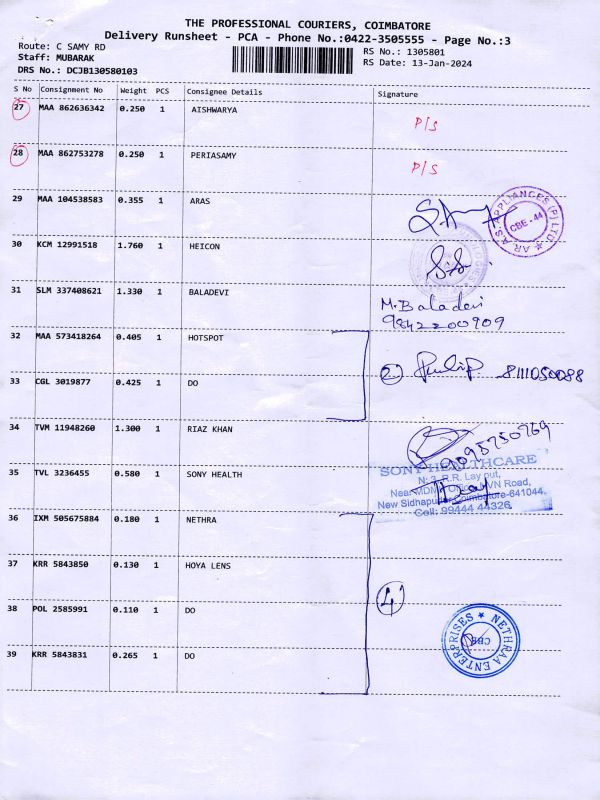 THE PROFESSIONAL COURIERS, COIMBATORE
Delivery Runsheet - PCA - Phone No.:0422-3505555 - Page No.:3
Route: C SAMY RD
RS No.: 1305801
Staff: MUBARAK
RS Date: 13-Jan-2024
DRS No.: DCJB130580103
S No Consignment No Weight PCS Consignee Details Signature
27 MAA 862636342 0.250 1 AISHWARYA P/S
28 MAA 862753278 0.250 1 PERIASAMY P/S
29 MAA 104538583 0.355 1 ARAS
AR.A.S. APPLIANCES (P) LTD.
CBE-44
30 KCM 12991518 1.760 1 HEICON
31 SLM 337408621 1.330 1 BALADEVI M. Baladevi
9842200909
32 MAA 573418264 0.405 1 HOTSPOT
2 8111050088
33 CGL 3019877 0.425 1 DO
34 TVM 11948260 1.300 1 RIAZ KHAN
9095750769
35 TVL 3236455 0.580 1 SONY HEALTH
SONY HEALTHCARE
R.R. Lay out,
Near MDM VN Road,
New Sidhapudur, Coimbatore-641044.
Cell: 99444 44326
36 IXM 505675884 0.180 1 NETHRA
37 KRR 5843850 0.130 1 HOYA LENS
4
38 POL 2585991 0.110 1 DO
NETHRAA ENTERPRISES
CBE
39 KRR 5843831 0.265 1 DO